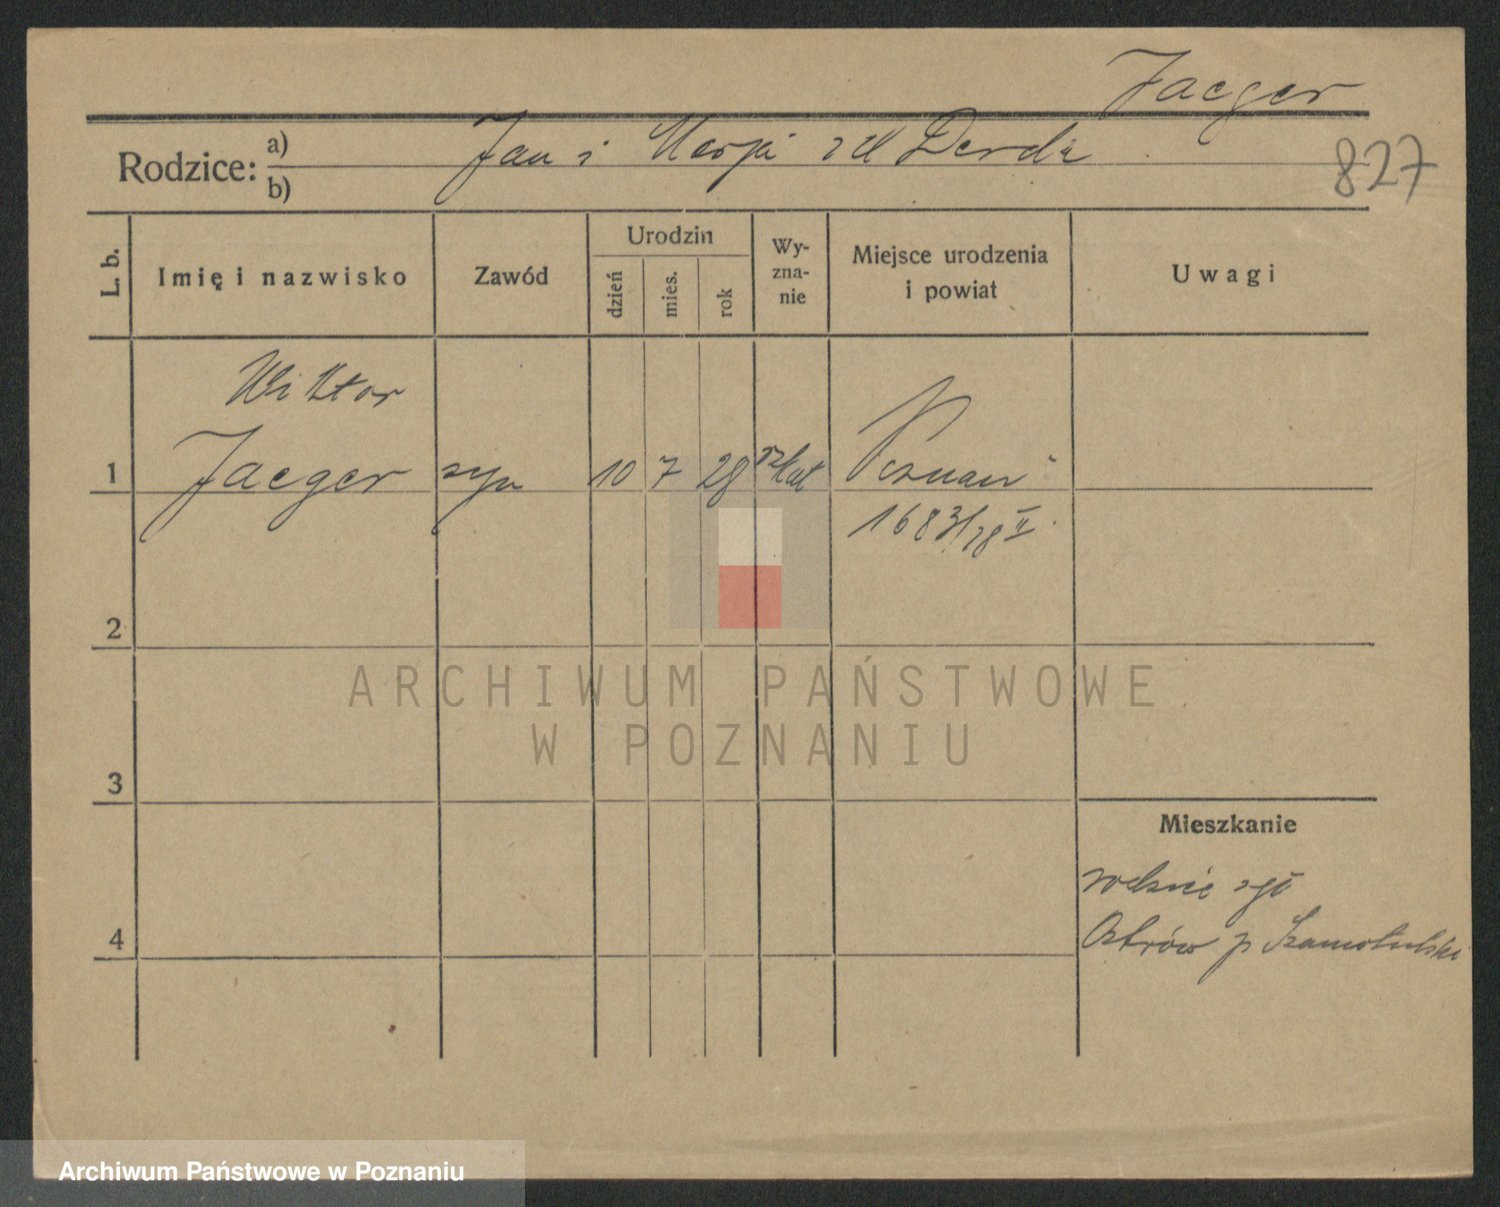 Jaeger
Rodzice: a) Jan i Marja zd Derda
b)
827
L. b.
Imię i nazwisko
Zawód
Urodzin
dzień
mies.
rok
Wy-
zna-
nie
Miejsce urodzenia
i powiat
Uwagi
Wiktor
1 Jaeger syn 10 7 28 rzkat Poznań
1683/28 II.
2
ARCHIWUM PAŃSTWOWE
W POZNANIU
3
Mieszkanie
4 Ostrów p Szamotulski
Archiwum Państwowe w Poznaniu